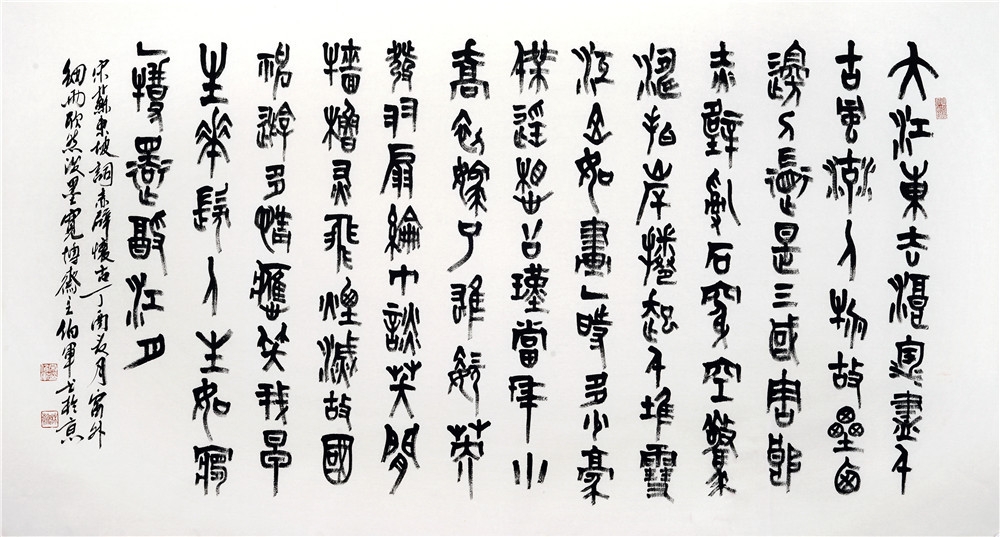 大江東去浪淘盡千
古風流人物故壘西
邊人道是三國周郎
赤壁亂石穿空驚
濤拍岸捲起千堆雪
江山如畫一時多少豪
傑遥想公瑾當年小
喬初嫁了雄姿英
發羽扇綸巾談笑間
檣櫓灰飛煙滅故國
神遊多情應笑我早
生華髮人生如夢
一尊還酹江月
宋蘇東坡詞赤壁懷古丁酉月窗外
細雨欣然潑墨寬博齋主伯軍書於京